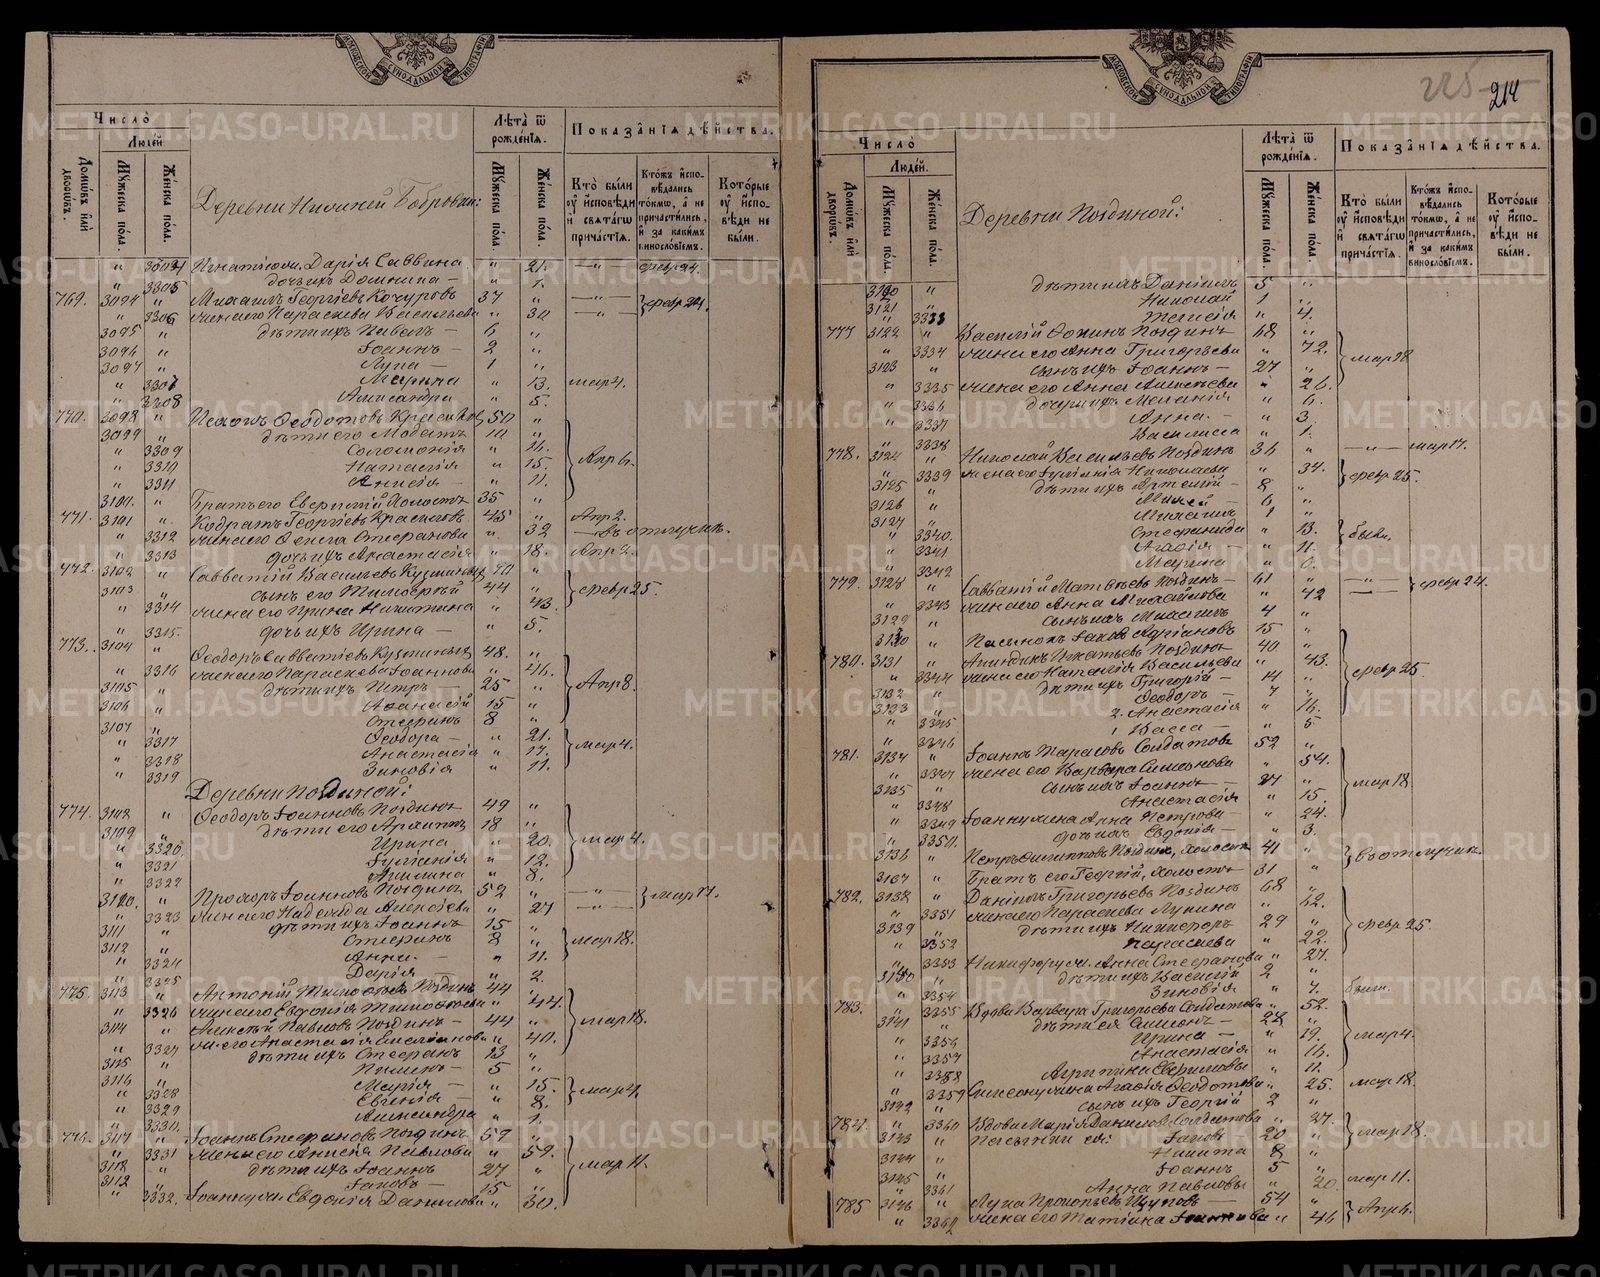 Число̀
Люде́й.
Домѡ́въ и҆лѝ дворѡ́въ.
Мꙋ́жеска по́ла.
Же́нска по́ла.
Деревни Нижней Бобровки:
Лѣ́та ѿ рожде́нїѧ.
Мꙋ́жеска по́ла.
Же́нска по́ла.
Показа̑нїѧ дѣ́йства.
Кто̀ бы́ли ᲂу҆ и҆сповѣди и҆ свѧта́гѡ прича́стїѧ.
Кто́жъ и҆спо-вѣ́дались то́кмѡ, а҆ не причасти́лись, и҆ за каки́мъ винослѡ́вїемъ.
Кото́рые ᲂу҆ и҆спо-вѣди не бы́ли.
" Игнатію ж. Дарія Саввина " 21. — " — февр 24.
" 3305 дочь ихъ Домника — " 1.
769. 3094 " Михаилъ Георгіевъ Кочуровъ 37 " — " — февр 24.
" 3306 жена его Параскева Васильева " 30 — " —
3095 " дѣти ихъ Павелъ — 6 "
3096 " Іоаннъ — 2 "
3097 " Лупа — 1 "
" 3307 Марѳа " 13. мар 4.
" 3308 Александра " 5.
770. 3098 " Ѳеодотовъ 50 "
3099 " дѣти его 10 "
" 3309 Соломонія " 16.
" 3310 Наталія " 15. Апр 6.
" 3311 Анисія — " 11.
3100. " Братъ его холостъ 35 "
771. 3101 " Кодратъ Георгіевъ 45 " Апр 2.
" 3312 жена его Стефанова " 32 — въ отлучкѣ.
" 3313 дочь ихъ Анастасія " 18. Апр 2.
772. 3102 " Савватій Васильевъ Кузминыхъ 70 "
3103 " сынъ его Тимоѳей 44 " февр 25.
" 3314 жена его Ирина Никитина " 43.
" 3315. дочь ихъ Ирина — " 5.
773. 3104 " Ѳеодоръ Савватіевъ Кузминыхъ 48. "
" 3316 жена его Параскева Іоаннова " 46.
3105 " дѣти ихъ Петръ — 25 " Апр 8.
3106 " Аѳанасій 15 "
3107 " Стефанъ 8 "
" 3317 Ѳеодора — " 21. мар 4.
" 3318 Анастасія " 17.
" 3319 Зиновія " 11.
Деревни Поздиной:
774. 3108 " Ѳеодоръ Іоанновъ Поздинъ 49 "
3109 " дѣти его Архиппъ 18 "
" 3320. Ирина " 20. мар 4.
" 3321 " 12.
" 3322 " 8.
3110. " Прохоръ Іоанновъ Поздинъ 52 " — " — мар 17.
" 3323 жена его Надежда Алексѣева " 27 — " —
3111 " дѣти ихъ Іоаннъ 15 "
3112 " Стефанъ 8 " мар 18.
" 3324 Анна. — " 11.
" 3325 Дарія " 2.
775. 3113 " Антоній Тимоѳеевъ Поздинъ 44 "
" 3326 жена его Евдокія Тимоѳеева " 44.
3114 " Алексѣй Павловъ Поздинъ — 44 " мар 18.
" 3327 ж. его Анастасія " 40.
3115 " дѣти ихъ Стефанъ 13 "
3116 " Пименъ — 5 "
" 3328 Марія — " 15.
" 3329 Евгенія — " 8. мар 4.
" 3330. Александра " 1.
776. 3117 " Іоаннъ Стефановъ Поздинъ 59 "
" 3331 жена его Анисія Павлова " 59.
3118 " дѣти ихъ Іоаннъ 27 " мар 11.
3112 " Іаковъ — 15 "
" 3332. Іоанну ж. Евдокія Данилова " 30.
214
Число̀
Люде́й.
Домѡ́въ и҆лѝ дворѡ́въ.
Мꙋ́жеска по́ла.
Же́нска по́ла.
Деревни Поздиной:
Лѣ́та ѿ рожде́нїѧ.
Мꙋ́жеска по́ла.
Же́нска по́ла.
Показа̑нїѧ дѣ́йства.
Кто̀ бы́ли ᲂу҆ и҆сповѣди и҆ свѧта́гѡ прича́стїѧ.
Кто́жъ и҆спо-вѣ́дались то́кмѡ, а҆ не причасти́лись, и҆ за каки́мъ винослѡ́вїемъ.
Кото́рые ᲂу҆ и҆спо-вѣди не бы́ли.
3120 " дѣти ихъ Даніилъ 5 "
3121 " Николай 1 "
" 3333 Таисія " 4.
777 3122 " Василій Ѳоминъ Поздинъ 68 "
" 3334 жена его Анна Григорьева " 72. мар 18
3123 " сынъ ихъ Іоаннъ — 27 "
" 3335 жена его Анна Алексѣева " 26.
" 3336 дочери ихъ Меланія " 6.
" 3337 Анна. — " 3.
" 3338 Василисса " 1.
778. 3124 " Николай Васильевъ Поздинъ 36 " — " — мар 17.
" 3339 жена его Николаева " 34. февр 25.
3125 " дѣти ихъ 8 "
3126 " 6 "
3127 " Михаилъ 1 "
" 3340. Стефанида " 13. были
" 3341 Агафія " 11.
" 3342 Марина " 6.
779. 3128 " Савватій Матвѣевъ Поздинъ — 61 " — " — февр 24.
" 3343 жена его Анна Михайлова " 42 — " —
3129 " сынъ ихъ Михаилъ 4 "
3130 " Пасынокъ Іаковъ Адріановъ 15 "
780. 3131 " Игнатьевъ Поздинъ 40 "
" 3344 жена его Наталія Васильева " 43. февр 25
3132 " дѣти ихъ Григорій — 14 "
3133 " Ѳеодоръ — 7 "
" 3345 2. Анастасія " 16.
" 3346 Васса — " 5
781. 3134 " Іоаннъ Тарасовъ Солдатовъ 52 "
" 3347 жена его Варвара Симеонова " 54.
3135 " сынъ ихъ Іоаннъ — 27 " мар 18
" 3348 Анастасія " 15
" 3349 Іоанну жена Анна Петрова — " 24.
" 3350. дочь ихъ Евдокія — " 3.
3136 " Петръ Филипповъ Поздинъ, холостъ 41 " въ отлучкѣ.
3137 " Братъ его Георгій, холостъ 31 "
782. 3138 " Даніилъ Григорьевъ Поздинъ 68 "
" 3351 жена его Параскева Лукина " 62.
3139 " дѣти ихъ Никифоръ 29 " февр 25
" 3352 Параскева " 22.
" 3353 Никифору ж. Анна Стефанова " 27.
3140 " дѣти ихъ Василій 2 "
" 3354 Зиновія " 7. были.
783. " 3355 Вдова Варвара Григорьева Солдатова " 52.
3141 " дѣти ея Симеонъ — 28 "
" 3356 Ирина — " 19. мар 4.
" 3357 Анастасія " 16.
" 3358 Агрипина Ефимовы " 11.
" 3359 Симеону жена Агафія Ѳеодотова " 25. мар 18.
3142 " сынъ ихъ Георгій 2 "
784. " 3360 Вдова Марія Данилова Солдатова " 27.
3143 " пасынки ея: Іаковъ 20 " мар 18.
3144 " Никита 8 "
3145 " Іоаннъ 5 "
" 3361 Анна Павловы " 20. мар 11.
785 3146 " Лука Прокопьевъ Шуповъ — 54 " Апр 6.
" 3362 жена его Татіана " 46